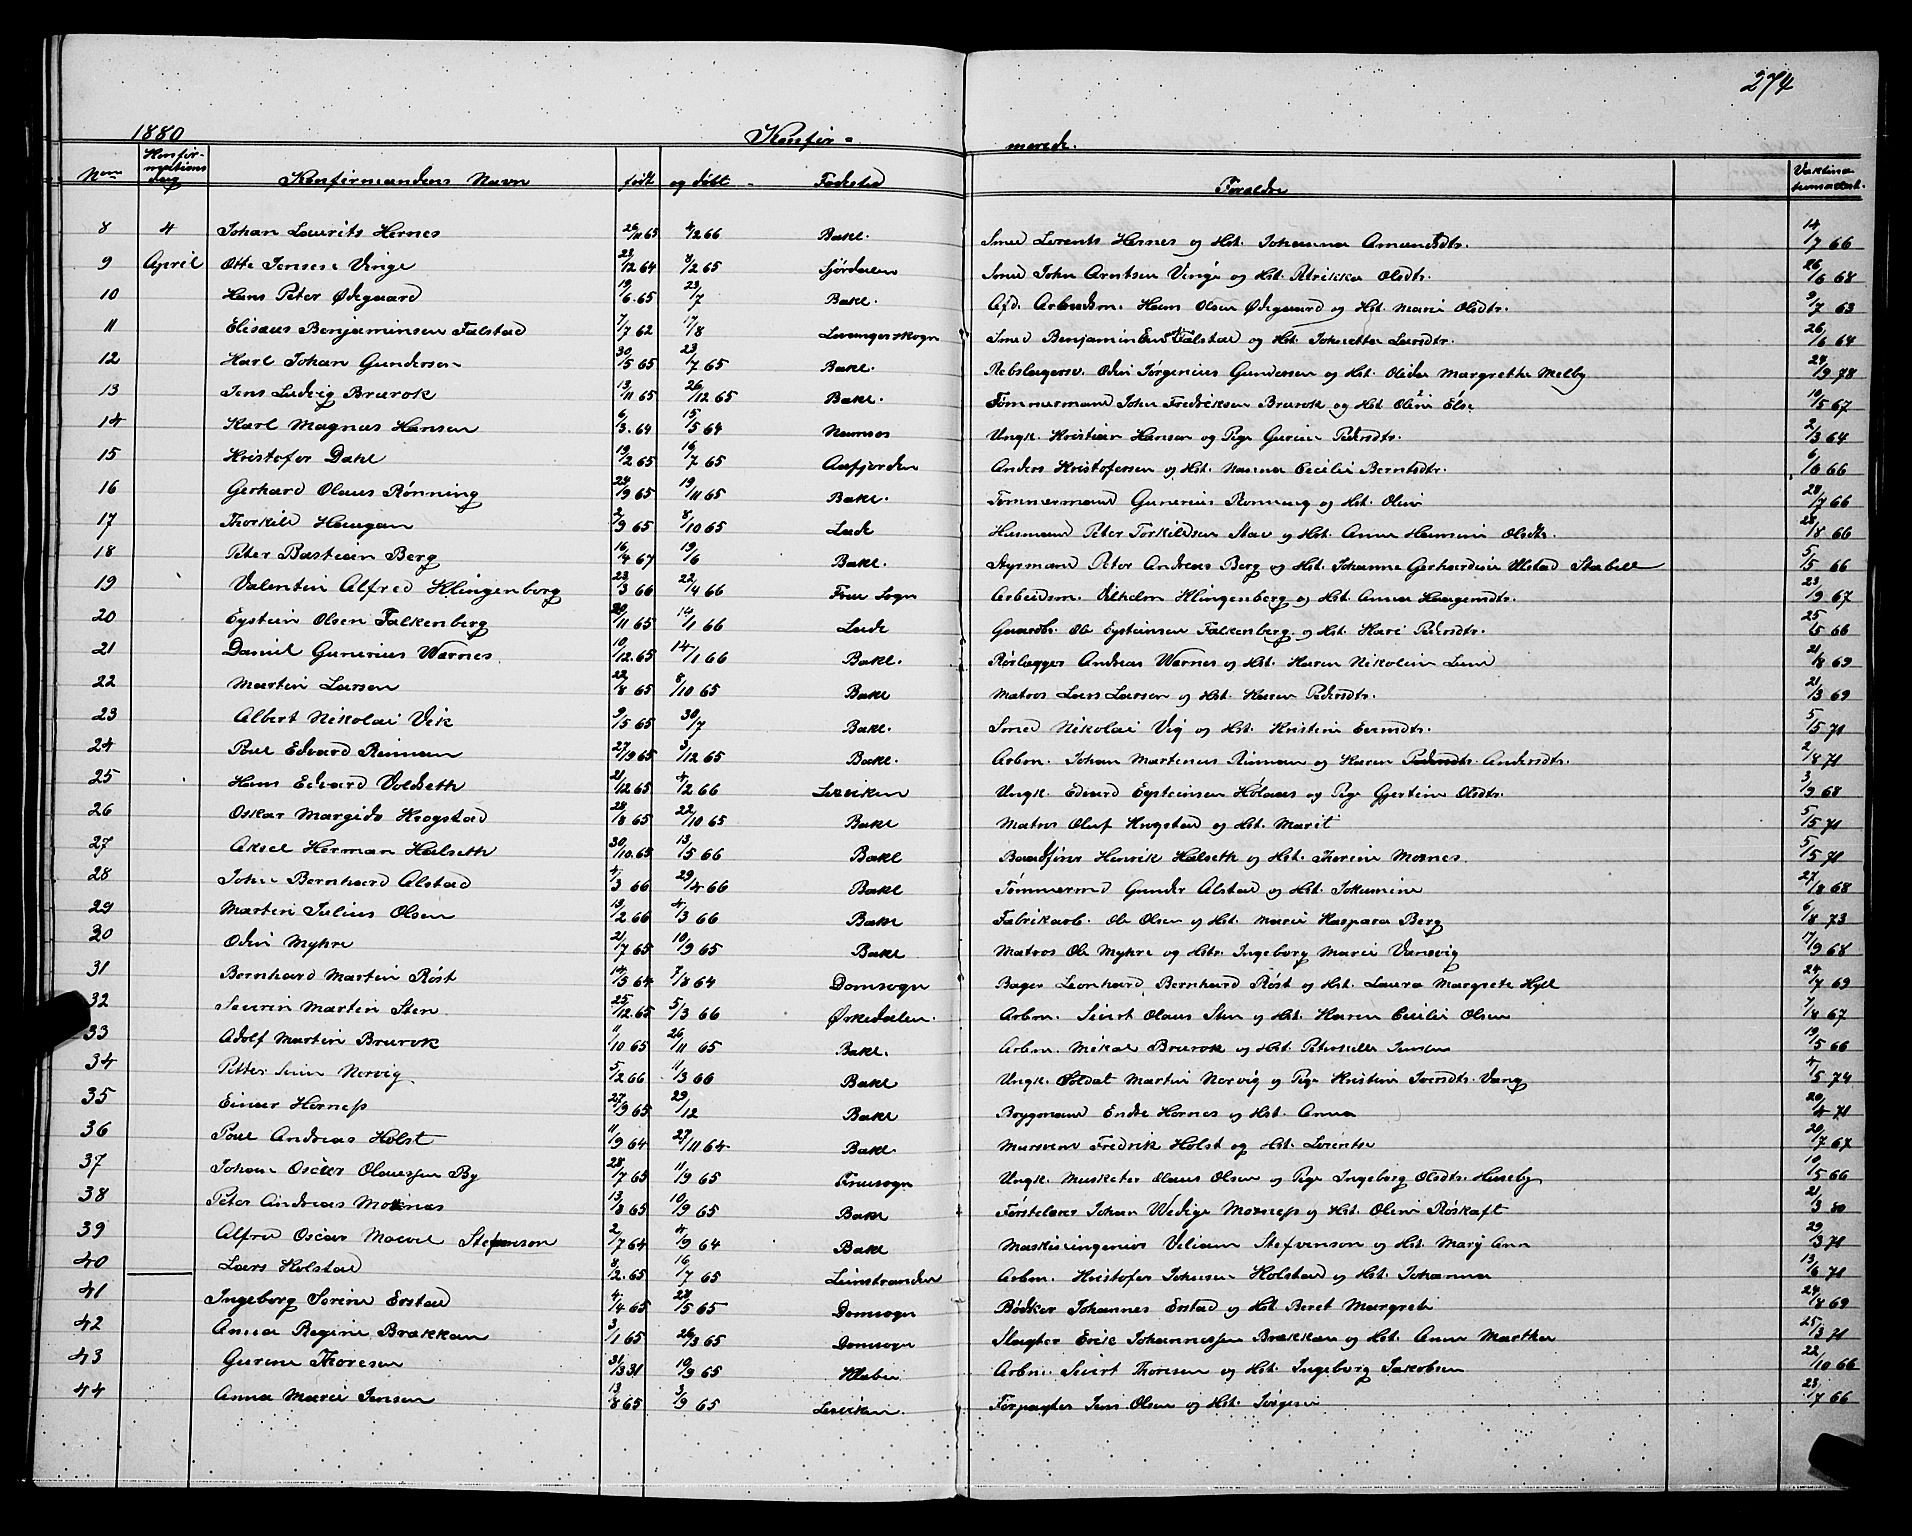 274
1880 Konfir= merede.
Num Konfirmations dag Konfirmandens Navn født og døbt Fødested Forældre
8 4 Johan Laurits Hernes 26/11 65 4/2 66 Bakl. Smed Lorents Hernes og Hst. Johanna Amundsdtr. 14/7 66
9 April Otto Jensen Vinge 22/12 64 8/2 65 Sjørdalen Smed John Arntsen Vinge og Hst. Petrikke Olsdtr. 26/6 68
10 Hans Peter Ødegaard 19/6. 65 23/7 Bakl. Afd. Arbeidsm. Hans Olsen Ødegaard og Hst. Marie Olsdtr. 9/7 63
11 Elisæus Benjaminsen Falstad 7/7 62 17/8 Levangerskogn Smed Benjamin Falstad og Hst. Johnetta Larsdtr. 26/6 64
12 Karl Johan Gundersen 30/5 65 23/7 65 Bakl. Rebslagersv. Odin Jørgenius Gundersen og Hst. Olida Margrethe Melby 24/9 78
13 Jens Ludvig Brurok 13/11 65 26/12 65 Bakl. Tømmermand John Fredriksen Brurok og Hst. Oline Else 10/5 67
14 Karl Magnus Hansen 6/3. 64 15/5 64 Namsos Ungk. Kristian Hansen og Pige Gurine Pedersdtr. 2/3 64
15 Kristofer Dahl 19/2 65 16/7 65 Aafjorden Anders Kristofersen og Hst. Nasma Cecilie Berntsdtr. 6/6 66
16 Gerhard Olaus Rønning 24/9 65 19/11 65 Bakl. Tømmermand Gunerius Rønning og Hst. Olin 28/7 66
17 Thorkild Haugan 2/9 65 8/10 65 Lade Husmand Peter Torkildsen Stav og Hst. Anna Hansine Olsdtr. 28/8 66
18 Peter Bastian Berg 16/4 67 19/6 Bakl. Styrmand Peter Andreas Berg og Hst. Johanne Gerhardine Ulstad Stabell 5/5 66
19 Valentin Alfred Klingenberg 23/3 66 22/4 66 Frue Sogn Arbeidsm. Vilhelm Klingenberg og Hst. Anna Haagensdtr. 23/9 67
20 Eystein Olsen Falkenberg 20/11 65 14/1 66 Lade Gaardbr. Ole Eysteinsen Falkenberg og Hst. Kari Pedersdtr. 25/5 66
21 Daniel Gunerius Wærnes. 10/12. 65 14/1 66 Bakl. Rørlægger Andreas Wærnes og Hst. Karen Nikoline Lund 21/8 69
22 Martin Larsen 22/8 65 8/10 65 Bakl Matros Lars Larsen og Hst. Karen Pedersdtr. 21/3 69
23 Albert Nikolai Vik 9/5 65 30/7 Bakl. Smed Nikolai Vig og Hst. Kristine Evensdtr. 5/5 71
24 Paul Edvard Reinaan 27/9 65 3/12 65 Bakl. Arbm. Johan Martenus Reinaan og Karen Pedersdtr. Andersdtr. 2/8 71
25 Hans Edvard Voldseth 21/12 65 4/2 66 Leiviken Ungk. Edvard Eysteinsen Holaas og Pige Gjertine Olsdtr. 3/9 68
26 Oskar Margido Krogstad 28/8 65 22/10 65 Bakl Matros Oluf Krogstad og Hst. Marit 5/5 71
27 Aksel Herman Halseth 30/10. 65 13/5 66 Bakl Baadfører Henrik Halseth og Hst. Therine Mosnes 5/5 71
28 John Bernhard Alstad 4/3 66 29/4 66 Bakl Tømmermd Gunder Alstad og Hst. Jokumine 27/8 68
29 Martin Julius Olsen 13/2 66 4/3 66 Bakl Fabrikarb. Ole Olsen og Hst. Marie Kaspara Berg 6/8 73
30 Odin Myhre 21/7 65 10/9 65 Bakl Matros Ole Myhre og Hst. Ingeborg Marie Vansvig 17/9 68
31 Bernhard Martin Røst 14/5 64 7/8 64 Domsogn Bager Leonhard Bernhard Røst og Hst. Laura Margrete Hyll 24/7 69
32 Severin Martin Sten 25/12. 65 5/3 66 Ørkedalen. Arbm. Sivert Olaus Sten og Hst. Karen Cecilie Olsen 7/8 67
33 Adolf Martin Brurok 11/10 65 26/11 65 Bakl. Arbm. Mikal Brurok og Hst. Peternille Jensen 19/5 66
34 Petter Norvig 5/2 66 11/3 66 Bakl Ungk. Soldat Martin Norvig og Pige Kristine Iversdtr. Vang 4/5 74
35 Einar Horness 27/9 65 29/12 Bakl Brygmand Endre Hornes og Hst. Anna 20/4 71
36 Paul Andreas Holst 11/9 64 27/11 64 Bakl. Mursvend Fredrik Holst og Hst. 20/7 67
37 Johan Oscar Olaussen By 28/7 65 11/9 65 Fruesogn Ungk. Musketer Olaus Olsen og Pige Ingeborg Olsdtr. Huseby 10/5 66
38 Peter Andreas Mosnes 13/8 65 10/9 65 Bakl Førstelærer Johan Wedige Mosness og Hst. Oline Røskaft 21/3 80
39 Alfred Oscar Stefenson 2/7 64 4/9 64 Bakl Maskiningeniør Veliam Stefvenson og Hst. Mary Ann 29/3 71
40 Lars Holstad 8/2. 65 16/7 65 Leinstranden Arbm. Kristofer Johnsen Holstad og Hst. Johanna 13/6 71
41 Ingeborg Serine Erstad 4/4 65 28/5 65 Domsogn Bødker Johannes Erstad og Hst. Beret Margrete 24/8 69
42 Anna Regine Brækkan 3/1 65 26/3 65 Domsogn Slagter Erik Johannessen Brækkan og Hst. Anne Martha 25/3 71
43 Gurine Thoresen 31/3 31 19/3 65 Klæbu Arbm. Sivert Thoresen og Hst. Ingeborg Jakobsen 22/10 66
44 Anna Marie Jensen 13/8 65 3/9 65 Leiviken. Forpagter Jens Olsen og Hst. Jørgine 23/7 66